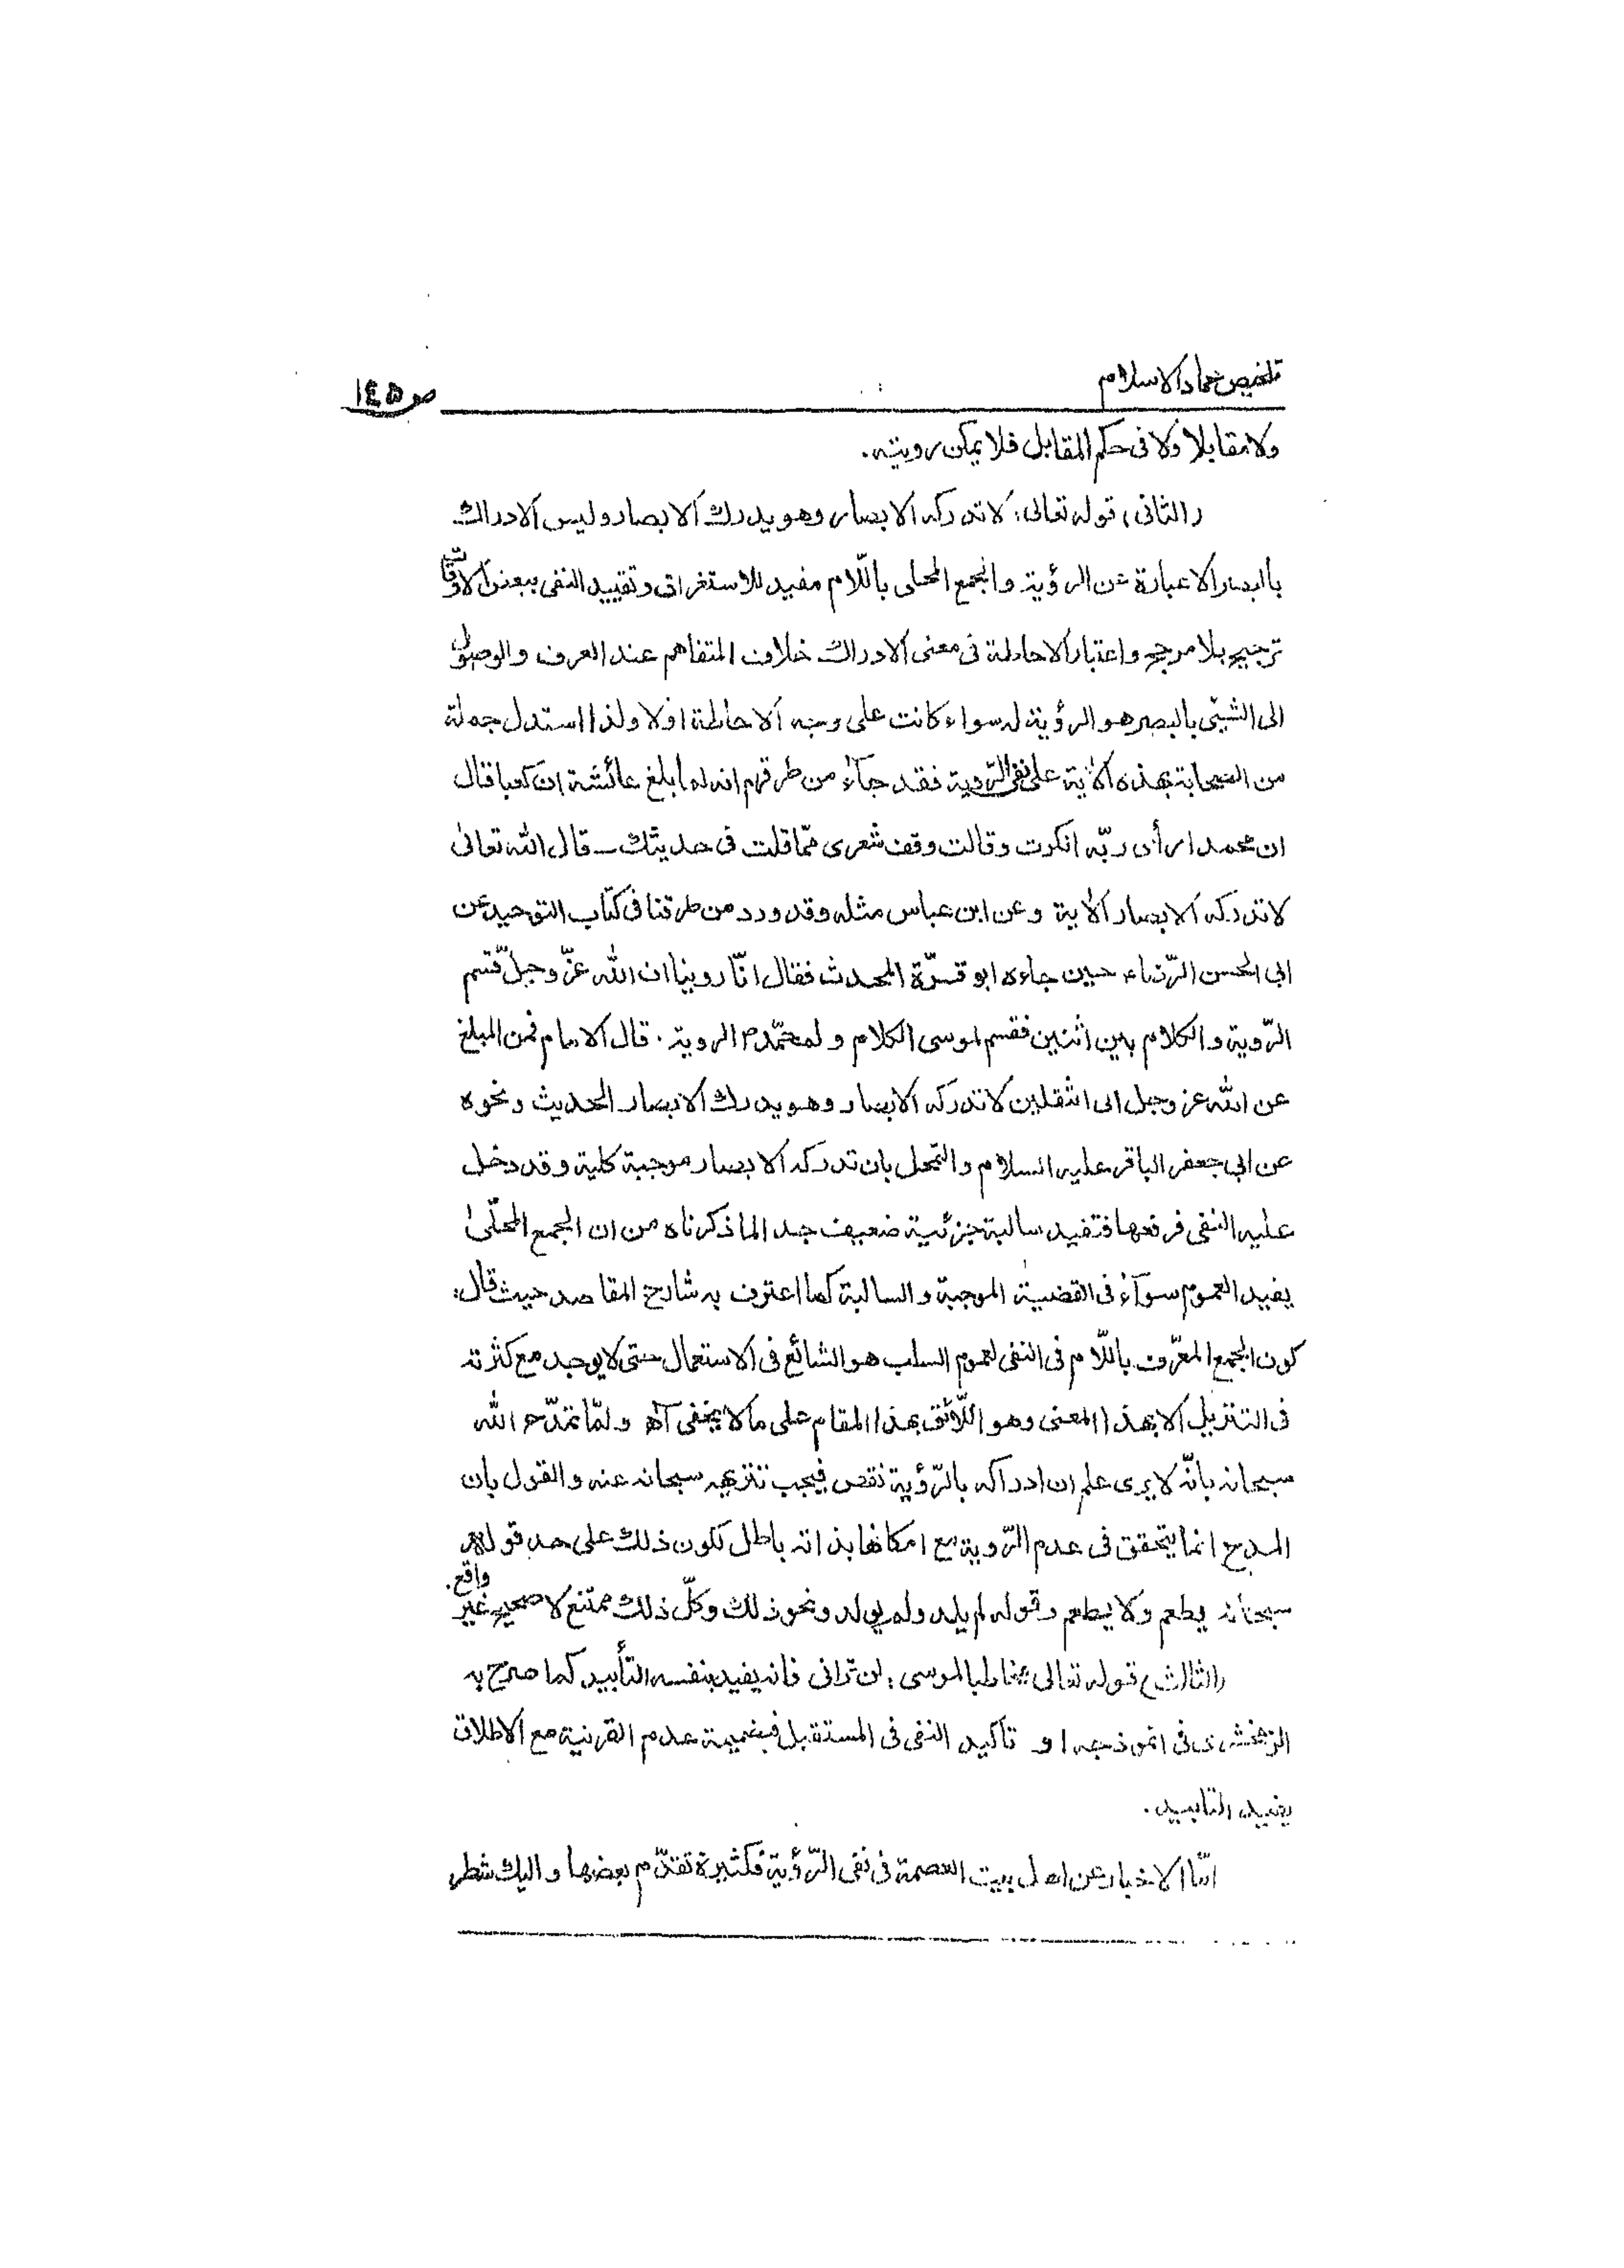 تلخيص عماد الاسلام
ص ١٤٥
ولا مقابلا ولا فى حكم المقابل فلا يمكن رويته.
(الثانى) قوله تعالى: لا تدركه الابصار وهو يدرك الابصار وليس الادراك
بالبصر الا عبارة عن الرؤية والجمع المحلى باللّام مفيد للاستغراق وتقييد النفى ببعض الاوقات
ترجيح بلا مرجح واعتبار الاحاطة فى معنى الادراك خلاف المتفاهم عند العرف والوصول
الى الشيئى بالبصر هو الرؤية له سواء كانت على وجه الاحاطة اولا ولذا استدل جملة
من الصحابة بهذه الآية على نفى الرّوية فقد جآء من طرقهم انه لما بلغ عائشة ان كعبا قال
ان محمدا رأى ربّه انكرت وقالت وقف شعرى ممّا قلت فى حديثك ــ قال الله تعالىٰ
لا تدركه الابصار الآية وعن ابن عباس مثله وقد ورد من طرقنا فى كتاب التوحيد عن
ابى الحسن الرّضاء حين جاءه ابو قرّة المحدث فقال انّا روينا ان الله عزّ وجلّ قسّم
الرّوية والكلام بين اثنين فقسم لموسى الكلام ولمحمّد م الروية. قال الامام فمن المبلغ
عن الله عز وجل الى الثقلين لا تدركه الابصار وهو يدرك الابصار الحديث ونحوه
عن ابى جعفر الباقر عليه السلام والتمحل بان تدركه الابصار موجبة كلية وقد دخل
عليه النفى فرفعها فتفيد سالبة جزئية ضعيف جدا لما ذكرناه من ان الجمع المحلّىٰ
يفيد العموم سوآء فى القضية الموجبة والسالبة كما اعترف به شارح المقاصد حيث قال:
كون الجمع المعرّف باللّام فى النفى لعموم السلب هو الشائع فى الاستعمال حتى لا يوجد مع كثرته
فى التنزيل الا بهذا المعنى وهو اللّائق بهذا المقام على ما لا يخفى آه ولمّا تمدّح الله
سبحانه بانّه لا يرى علم ان ادراكه بالرّؤية نقص فيجب تنزيهه سبحانه عنه والقول بان
المدح انما يتحقق فى عدم الرّوية مع امكانها بذاته باطل لكون ذلك على حد قوله
سبحانه يطعم ولا يطعم وقوله لم يلد ولم يولد ونحو ذلك وكلّ ذلك ممتنع لا صحيح غير واقع.
(الثالث) قوله تعالى مخاطبا لموسى: لن ترانى فانه يفيد بنفسه التأبيد كما صرح به
الزمخشرى فى انموذجه او تاكيد النفى فى المستقبل فبضميمة عدم القرنية مع الاطلاق
يفيد التابيد.
امّا الاخبار عن اهل بيت العصمة فى نفى الرّؤية فكثيرة تقدّم بعضها واليك شطر